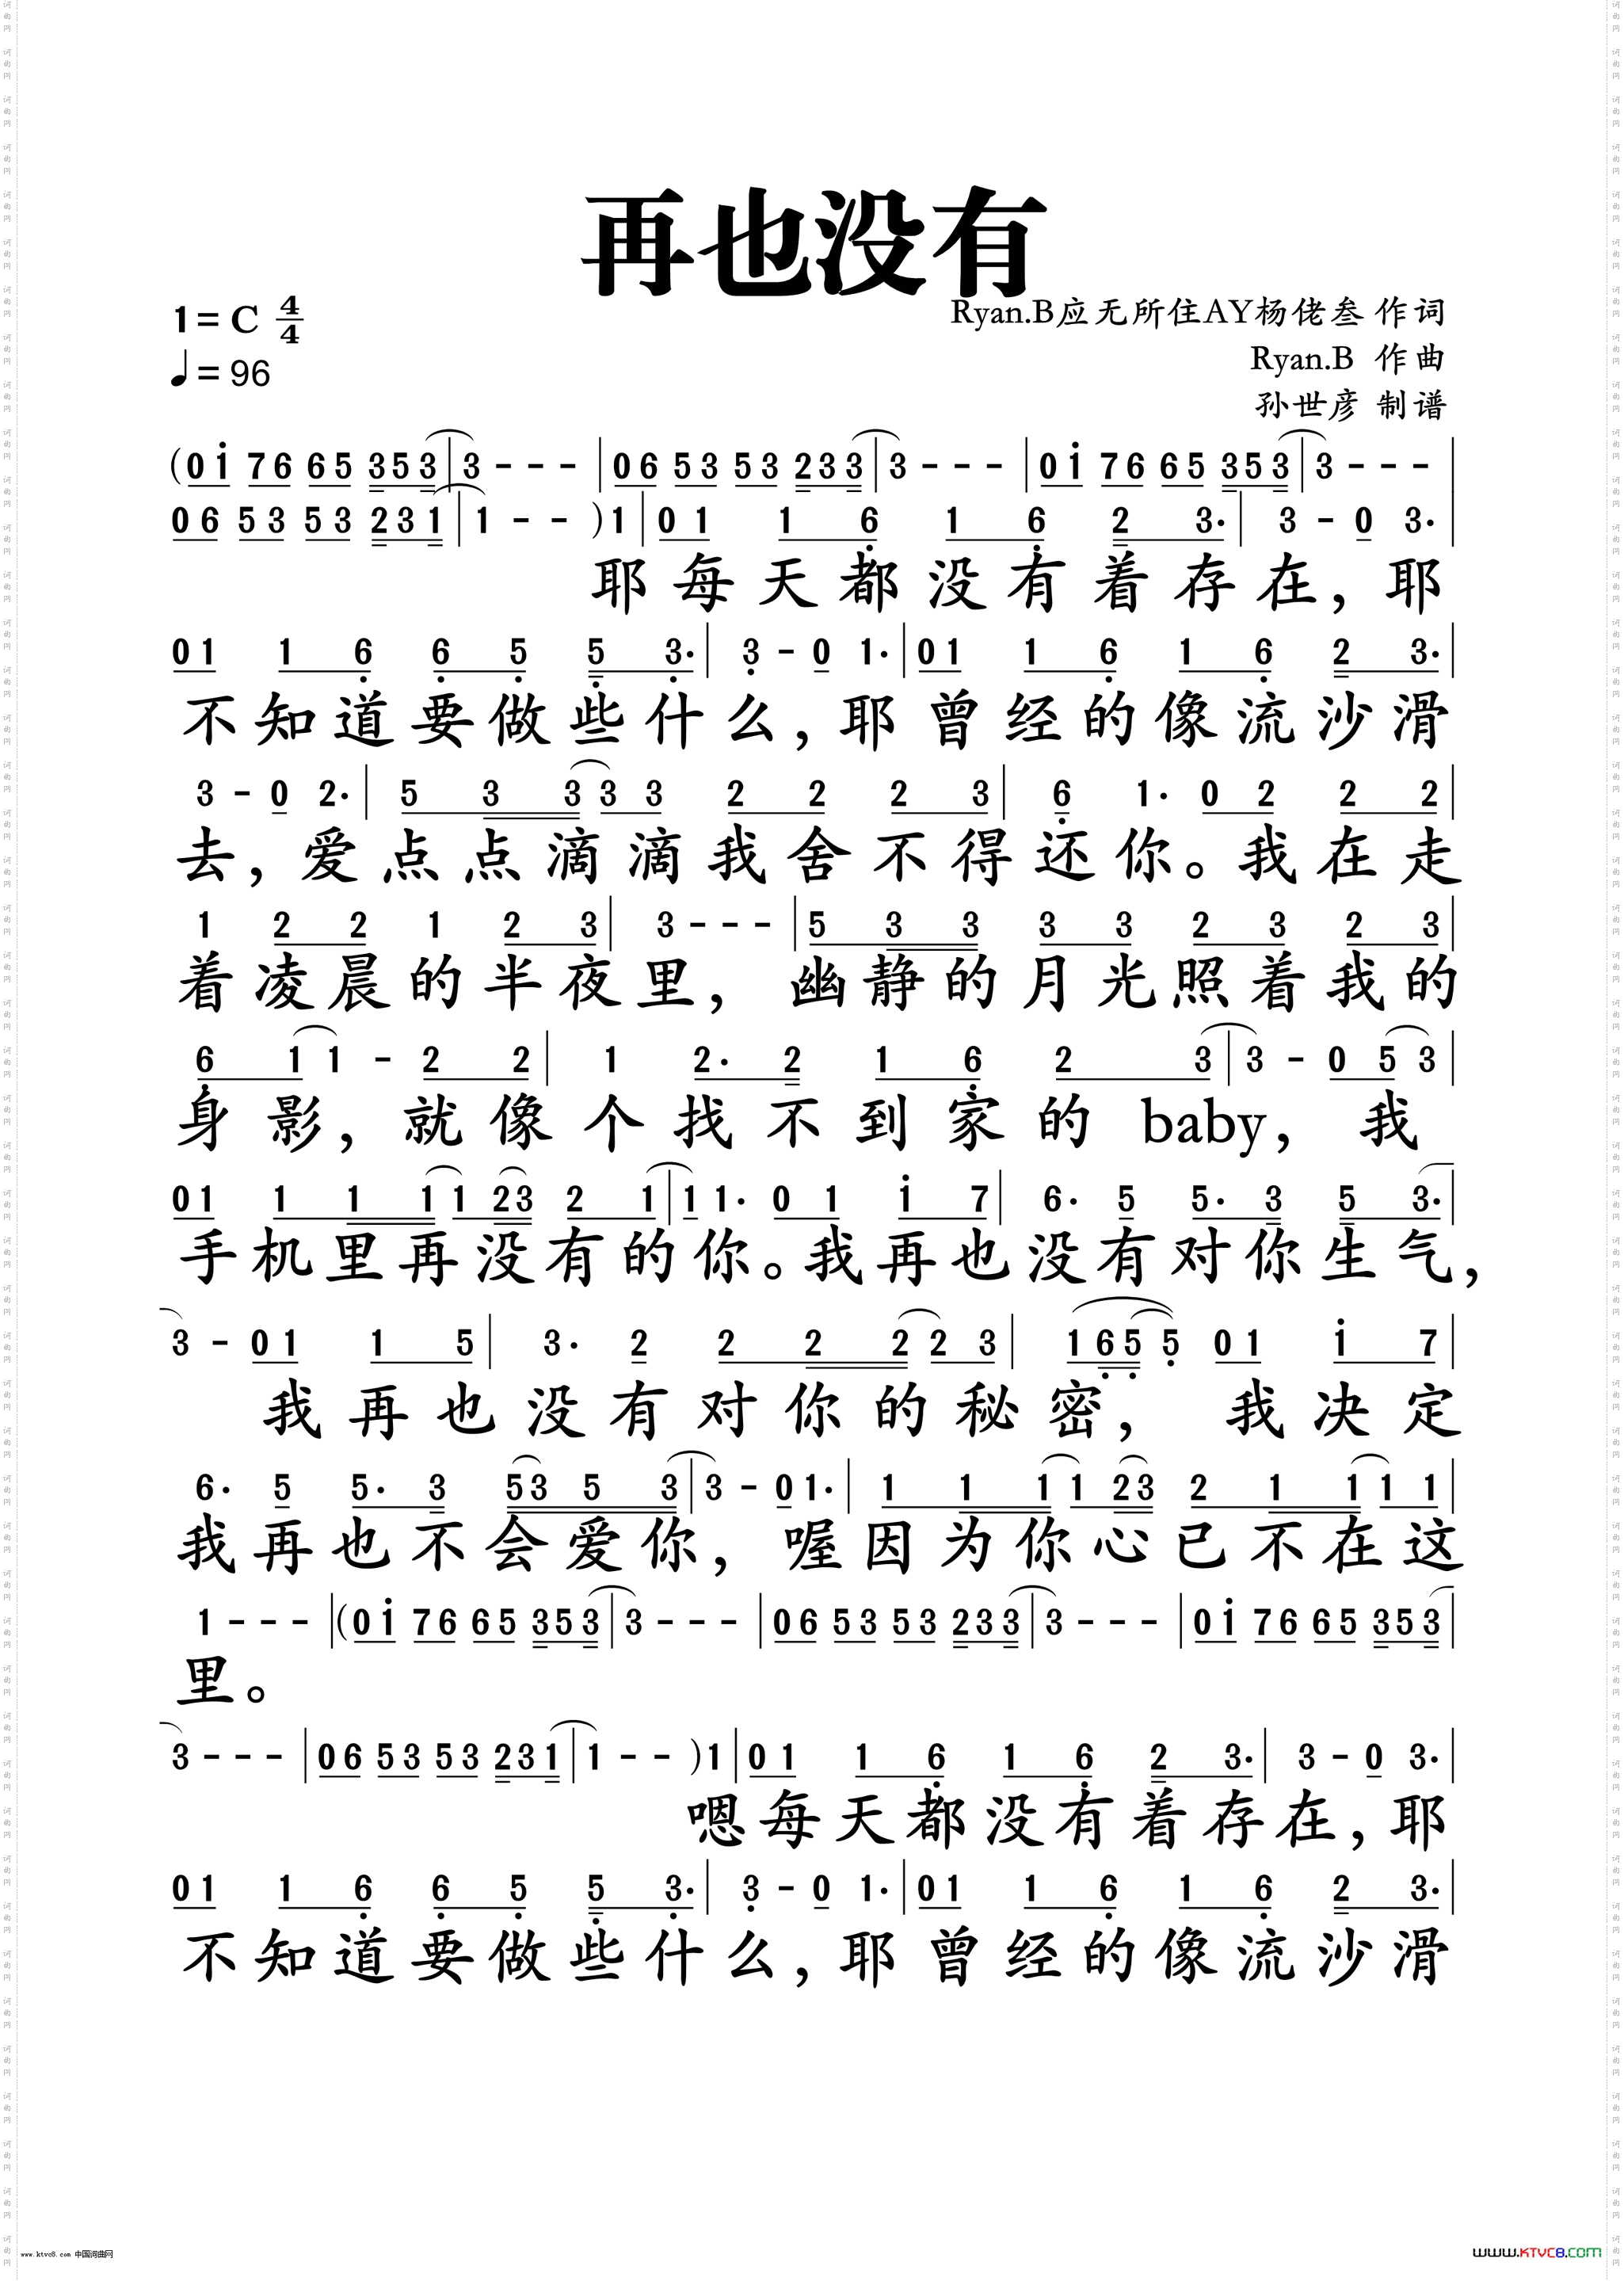 再也没有
1=C 4/4
Ryan.B应无所住AY杨佬叁 作词
♩=96
Ryan.B 作曲
孙世彦 制谱
(0i 76 65 353|3---|06 53 53 233|3---|0i 76 65 353|3---|
06 53 53 231|1--)1|01 16 16 23.|3-0 3.|
耶每天都没有着存在,耶
01 16 65 53.|3-0 1.|01 16 16 23.|
不知道要做些什么,耶曾经的像流沙滑
3-0 2.|533 33 22 23|6 1. 02 22|
去,爱点点滴滴我舍不得还你。我在走
1 22 1 23|3---|533 33 23 23|
着凌晨的半夜里,幽静的月光照着我的
61 1 - 22|1 2.2 16 23|3-05 3|
身影,就像个找不到家的baby,我
01 111 123 21|1 1. 01 i7|6. 5 5.3 53.|
手机里再没有的你。我再也没有对你生气,
3-01 15|3. 2 222 23|165 5 01 i7|
我再也没有对你的秘密,我决定
6. 5 5.3 5353|3-0 1.|111 123 211 11|
我再也不会爱你,喔因为你心已不在这
1---|(0i 76 65 353|3---|06 53 53 233|3---|0i 76 65 353|
里。
3---|06 53 53 231|1--)1|01 16 16 23.|3-0 3.|
嗯每天都没有着存在,耶
01 16 65 53.|3-0 1.|01 16 16 23.|
不知道要做些什么,耶曾经的像流沙滑
www.ktvc8.com 中国词曲网
WWW.KTVC8.COM